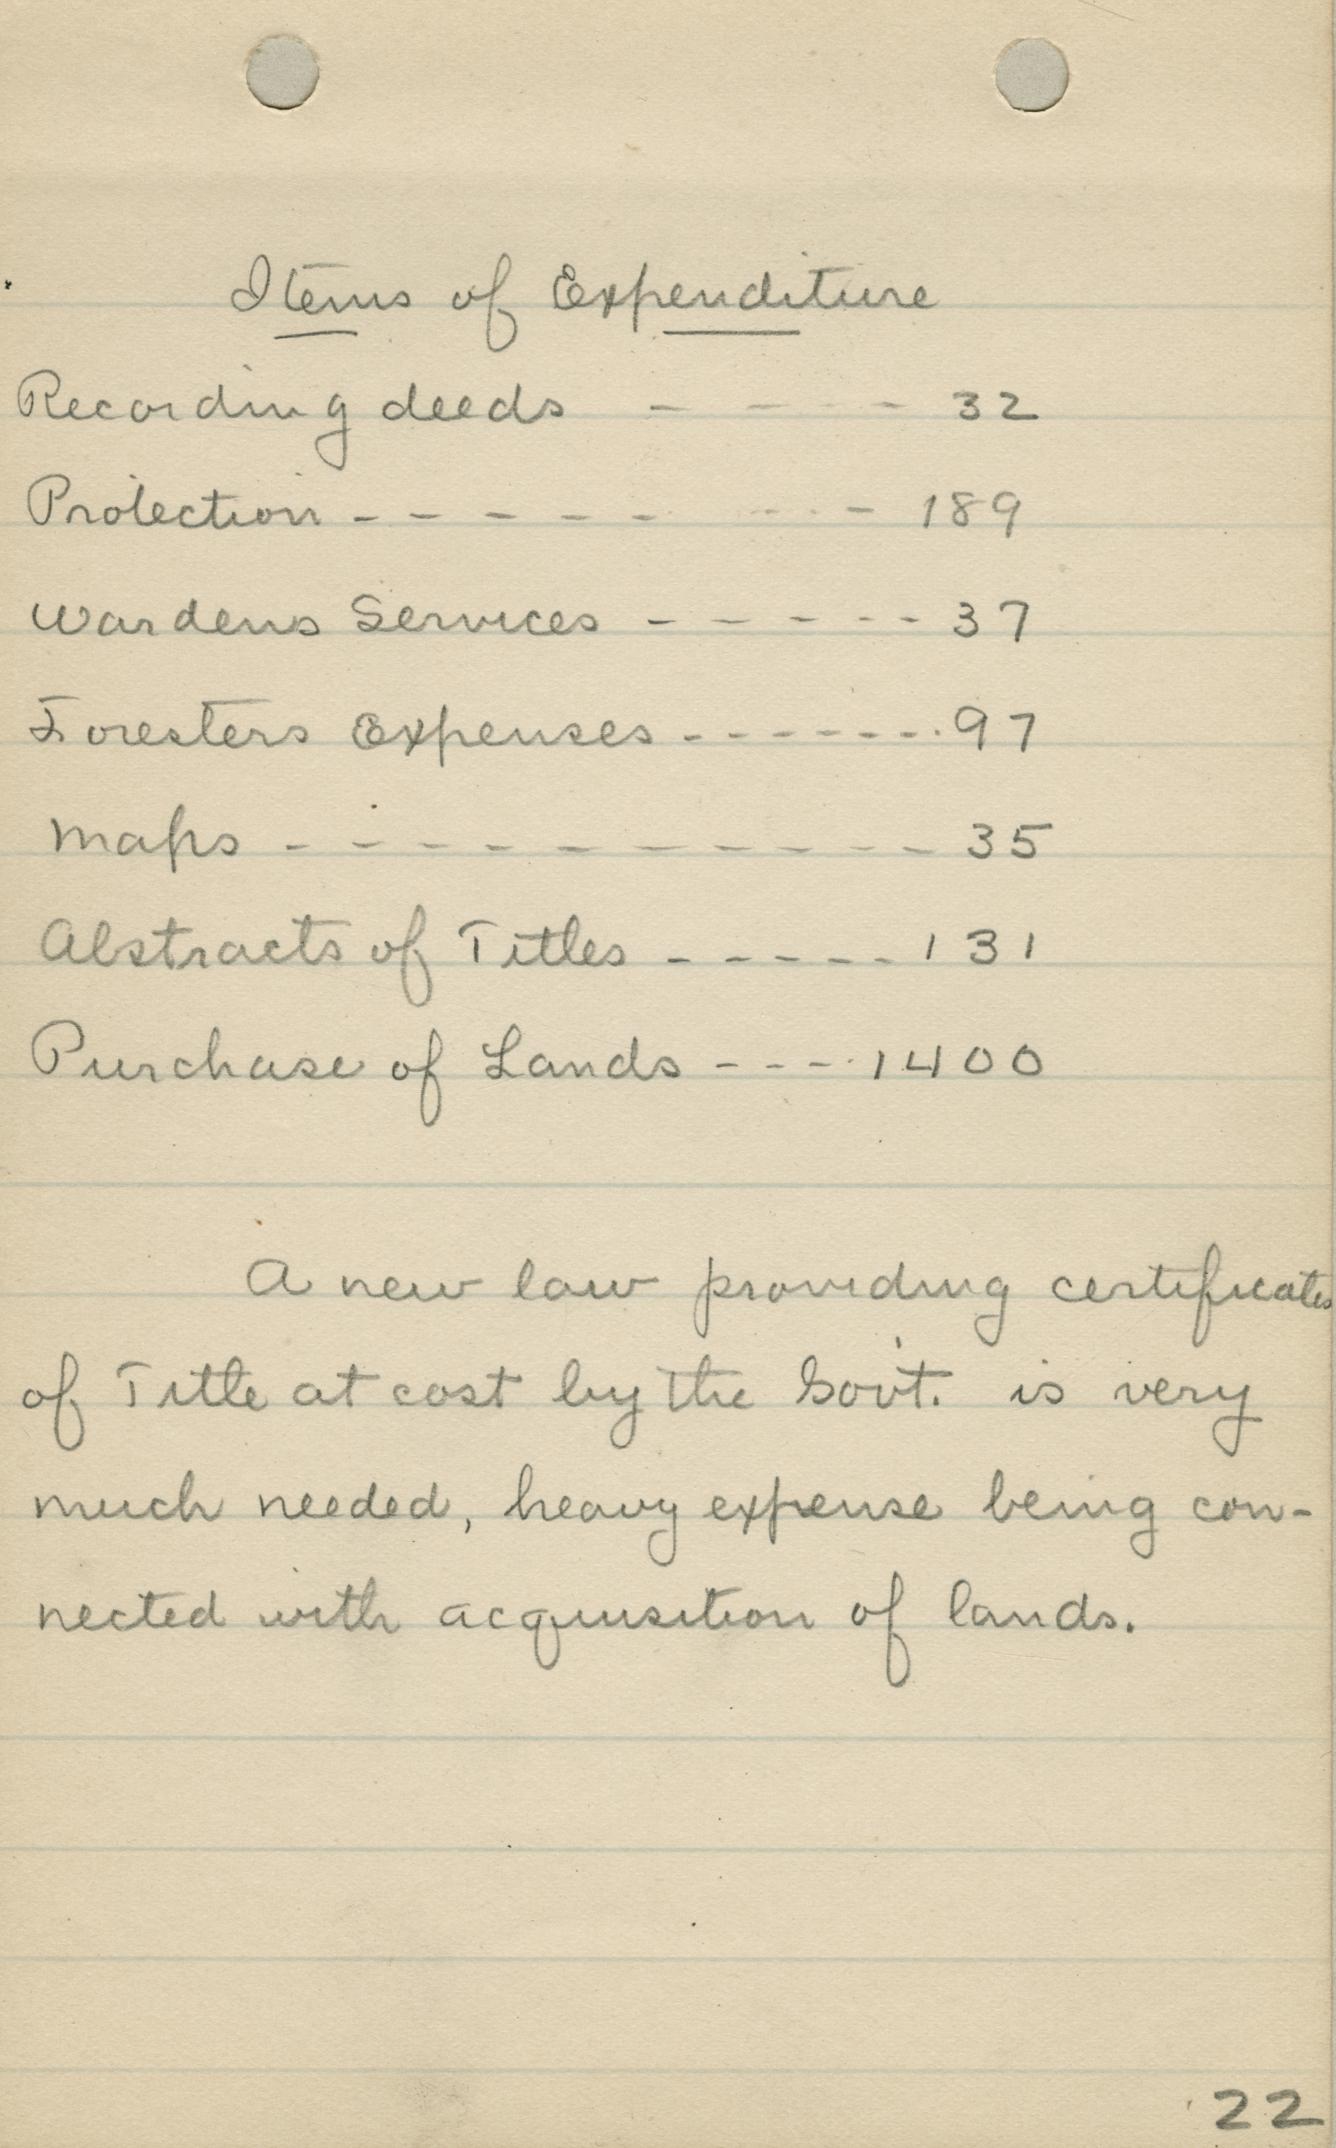 Items of Expenditure
Recording deeds - - - - 32
Protection - - - - - - - - - 189
Wardens Services - - - - - - 37
Foresters Expenses - - - - - - - 97
Maps - - - - - - - - - - 35
Abstracts of Titles - - - - - 131
Purchase of Lands - - - - 1400
A new law providing certificates
of Title at cost by the Gov't. is very
much needed, heavy expense being con-
nected with acquisition of lands.
22